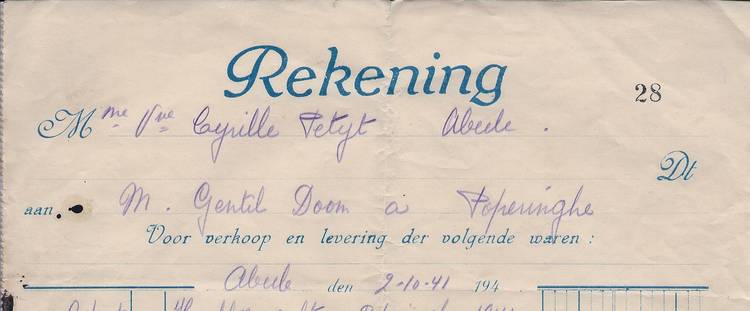 Rekening
28
Mme Vve Cyrille Petyt Abeele.
Dt
aan M. Gentil Doom a Poperinghe
Voor verkoop en levering der volgende waren:
Abeele den 2-10-41 194